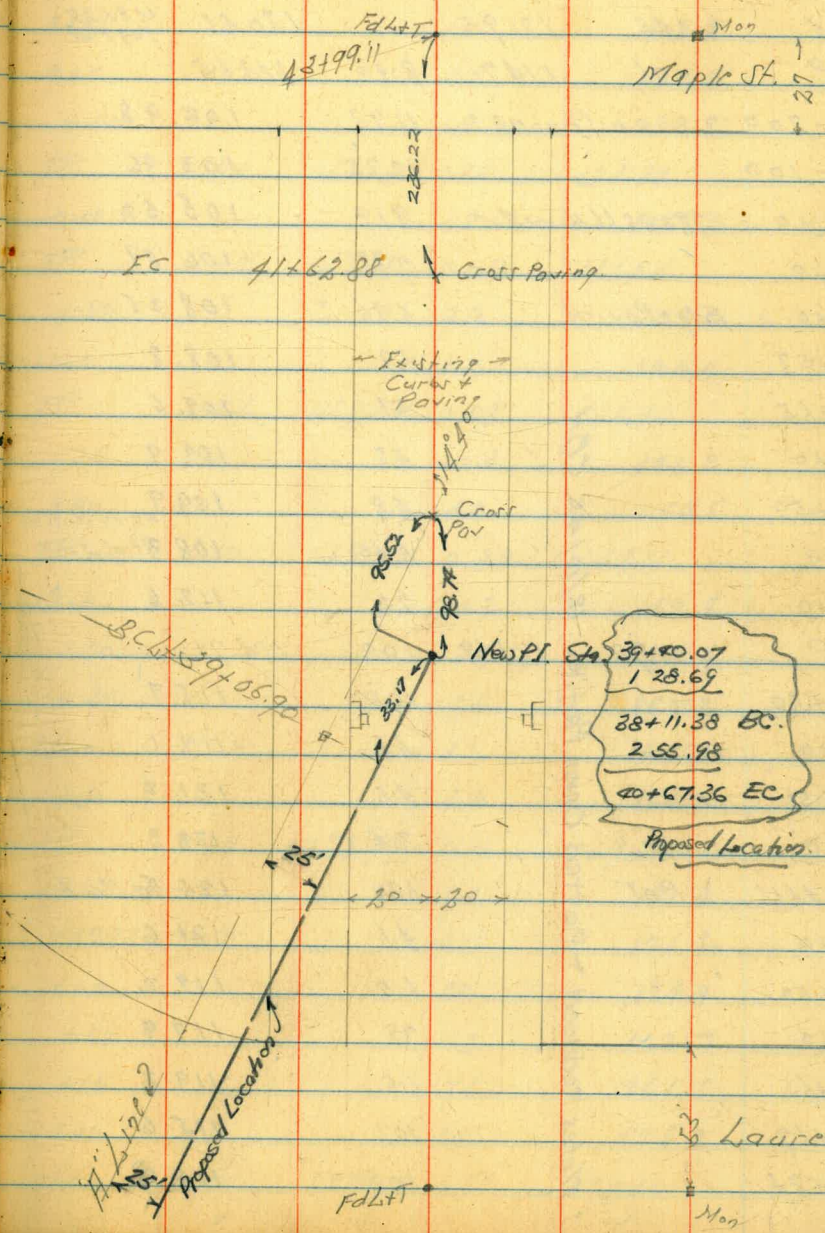 Fd L+T
Mon
43+99.11
Maple St.
27
236.22
E.C. 41+62.88
Cross Paving.
Existing
Curbs +
Paving
Cross
Pav
95.52
98.74
B.C. L+ 39+05.90
New P.I. Sta. 39+40.07
1 28.69
33.17
38+11.38 BC.
2 55.98
40+67.36 EC
Proposed Location.
25'
20 20
Proposed Location
"A" Line
25'
53
Laure
Fd L+T
Mon